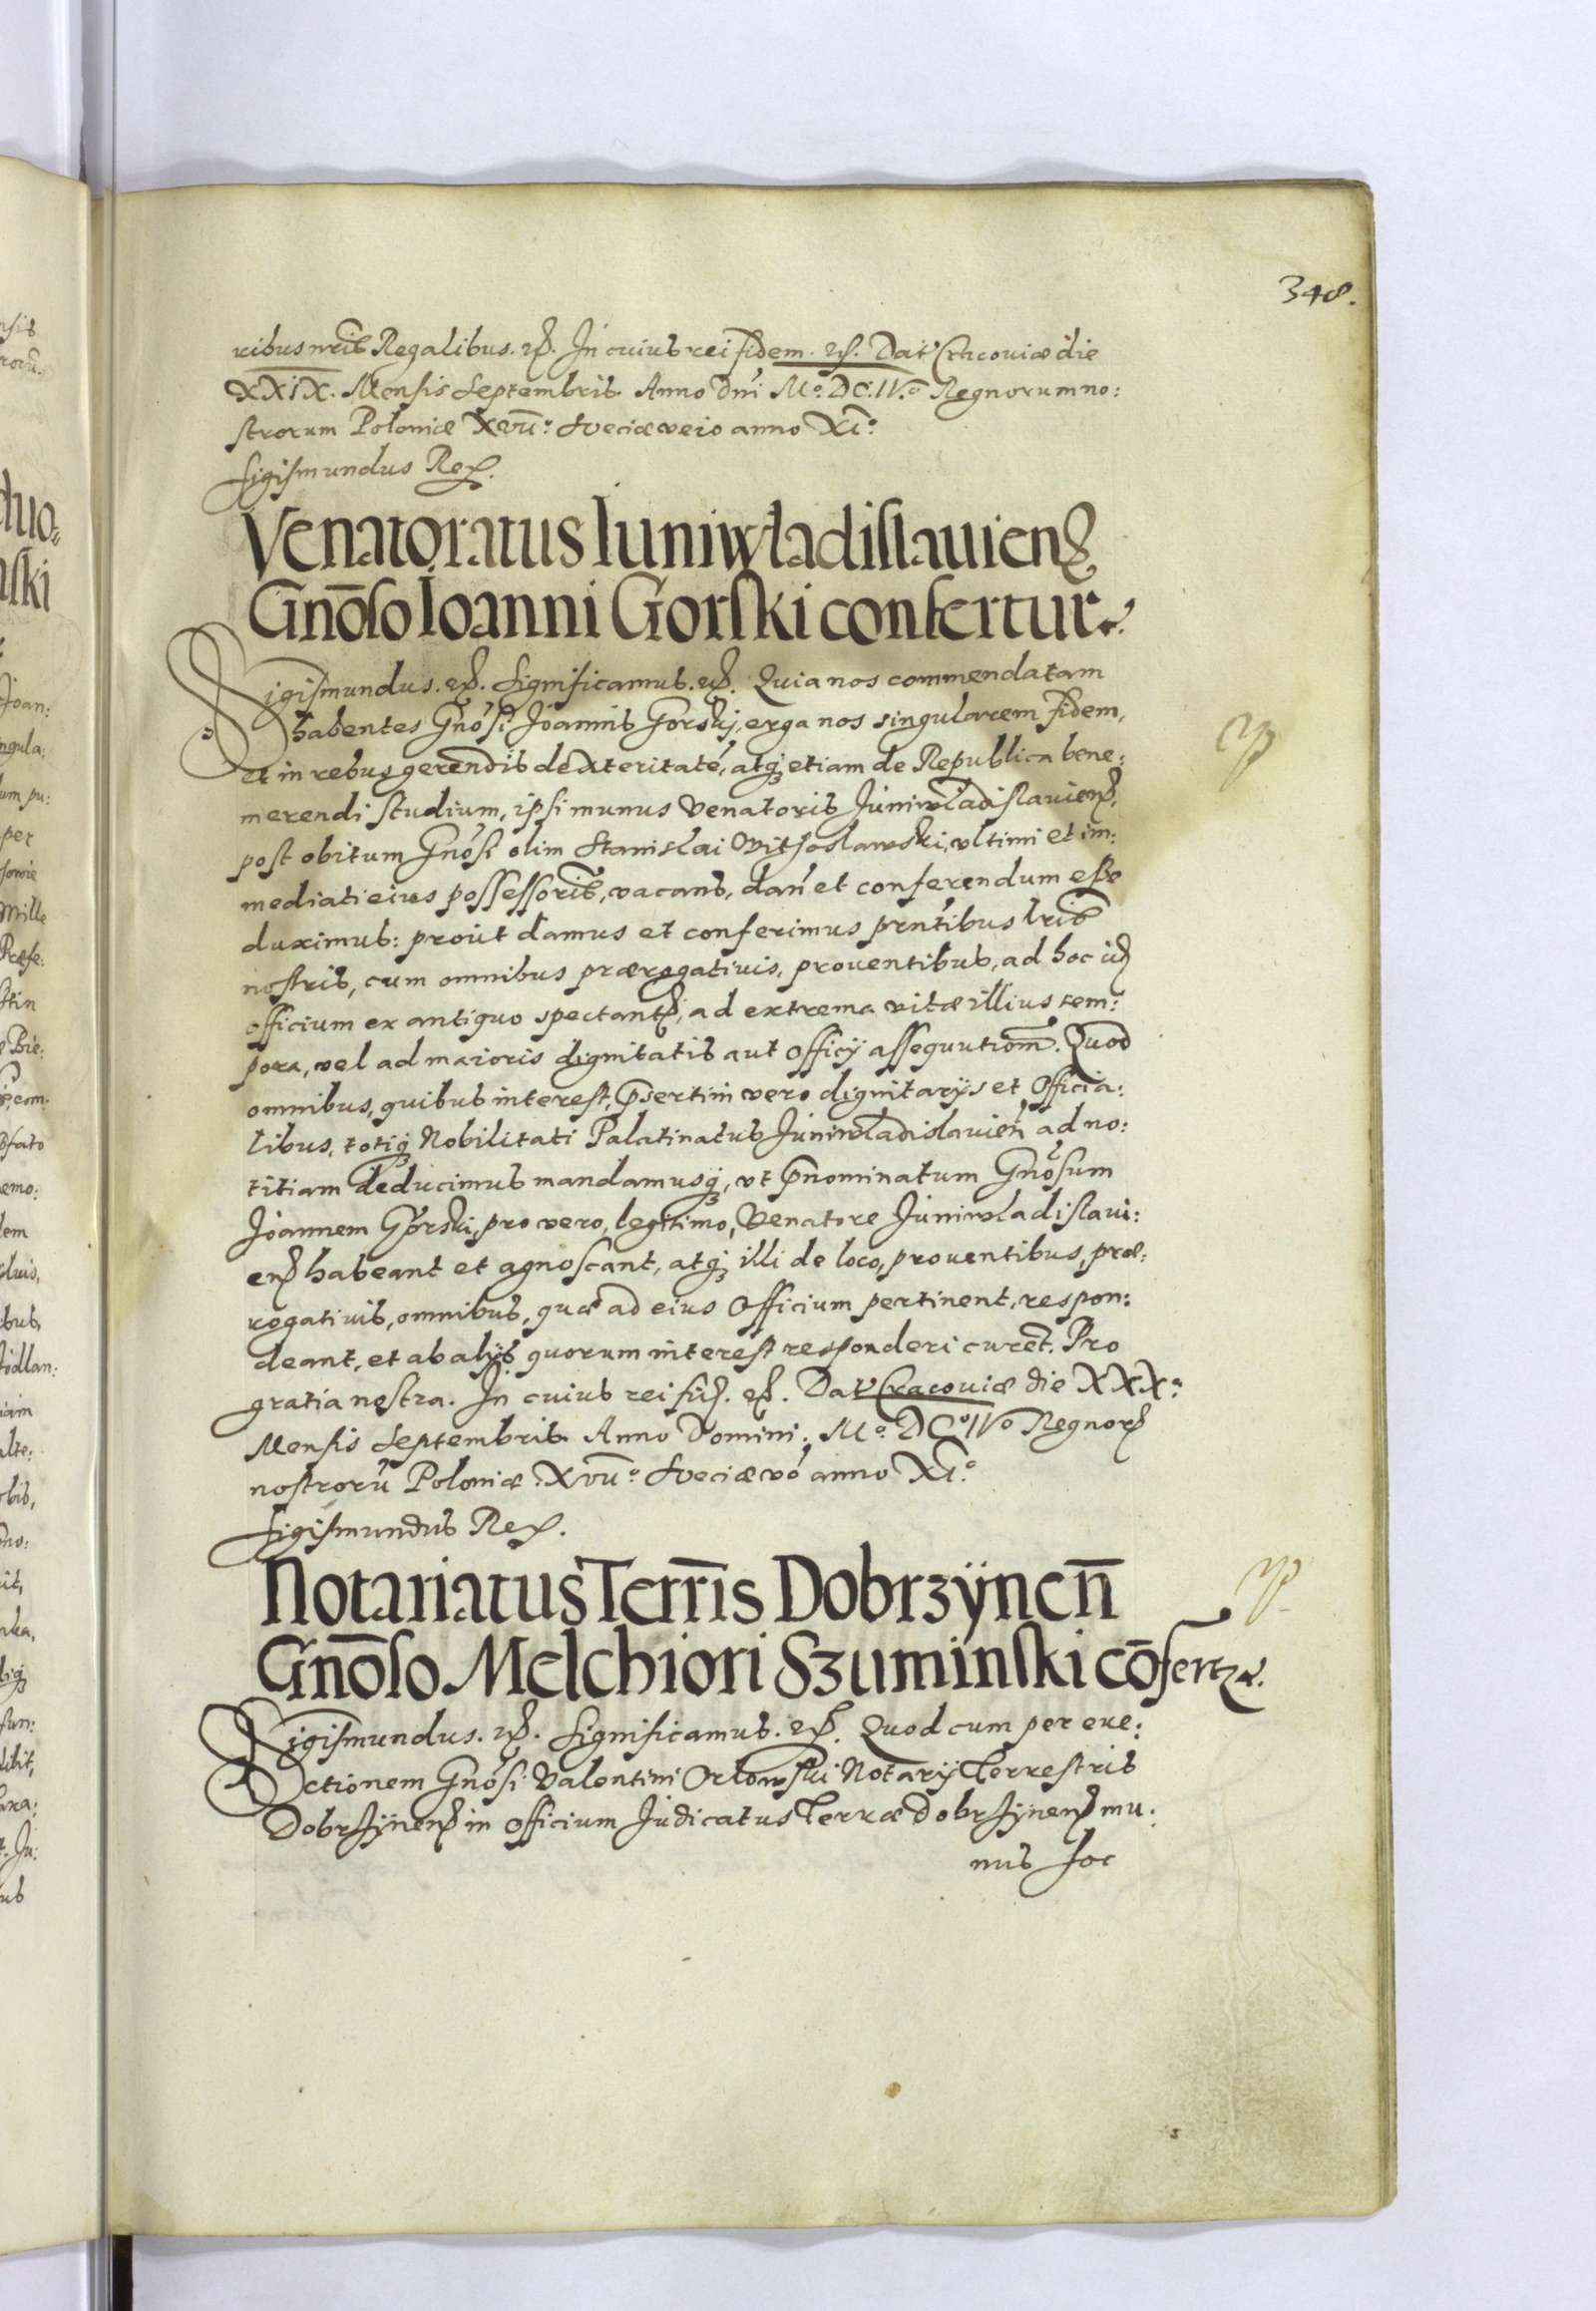 348.
ribus nris Regalibus. etc. In cuius rei fidem. etc. Dat Cracouiæ die
XXIX. Mensis Septembris Anno Dni Mº. DC. IV.º Regnorum no:
strorum Poloniæ XVII.º Sveciæ vero anno XI.º
Sigismundus Rex.
Venatoratus Iuniwladislauiens
Gnoso Ioanni Gorski confertur.
Sigismundus. etc. Significamus. etc. Quia nos commendatam
habentes Gnosi Joannis Gorskj, erga nos singularem fidem,
et in rebus gerendis dexteritate, atq etiam de Republica bene:
merendi studium, ipsi munus Venatoris Juniwladislauiens,
post obitum Gnosi olim Stanislai Withoslawski, vltimi et im:
mediati eius possessoris, vacans, dan et conferendum esse
duximus: prout damus et conferimus prntibus lris
nostris, cum omnibus prærogatiuis, prouentibus, ad hoc id
officium ex antiquo spectant, ad extrema vitæ illius tem:
pora, vel ad maioris dignitatis aut Officij assequutiom. Quod
omnibus, quibus interest, psertim vero dignitarijs et Officia:
libus, totiq Nobilitati Palatinatus Juniwladislauien ad no:
titiam deducimus mandamusq, vt pnominatum Gnosum
Joannem Gorski, pro vero, legitimo, Venatore Juniwladislaui:
ens habeant et agnoscant, atq illi de loco, prouentibus, præ:
rogatiuis, omnibus, quæ ad eius Officium pertinent, respon:
deant, et ab alijs quorum interest responderi curet. Pro
gratia nostra. In cuius rei fid. etc. Dat Cracouiæ die XXXª
Mensis Septembris Anno Domini. Mº. DCº IVº Regnor
nostroru Poloniæ XVII.º Sveciæ vo anno XI.º
Sigismundus Rex.
Notariatus Terris Dobrzÿnen
Gnoso Melchiori Szuminski cofertur.
Sigismundus. etc. Significamus. etc. Quod cum per eue:
ctionem Gnosi Valentini Orlowski Notarij Terrestris
Dobrzÿnens in Officium Judicatus Terræ Dobrzÿnens mu:
nus hoc